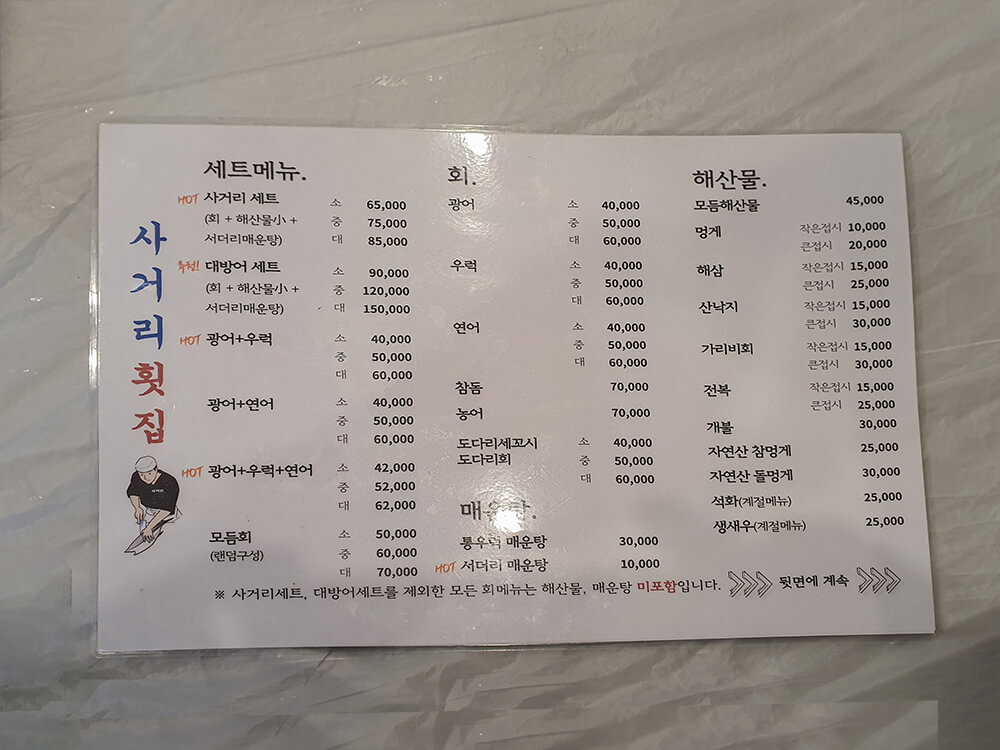 사거리횟집
사거리
세트메뉴.
HOT 사거리 세트 소 65,000
(회 + 해산물小 + 중 75,000
서더리매운탕) 대 85,000
추천! 대방어 세트 소 90,000
(회 + 해산물小 + 중 120,000
서더리매운탕) 대 150,000
HOT 광어+우럭 소 40,000
중 50,000
대 60,000
광어+연어 소 40,000
중 50,000
대 60,000
HOT 광어+우럭+연어 소 42,000
중 52,000
대 62,000
모듬회 소 50,000
(랜덤구성) 중 60,000
대 70,000
회.
광어 소 40,000
중 50,000
대 60,000
우럭 소 40,000
중 50,000
대 60,000
연어 소 40,000
중 50,000
대 60,000
참돔 70,000
농어 70,000
도다리세꼬시 소 40,000
도다리회 중 50,000
대 60,000
매운탕.
통우럭 매운탕 30,000
HOT 서더리 매운탕 10,000
해산물.
모듬해산물 45,000
멍게 작은접시 10,000
큰접시 20,000
해삼 작은접시 15,000
큰접시 25,000
산낙지 작은접시 15,000
큰접시 30,000
가리비회 작은접시 15,000
큰접시 30,000
전복 작은접시 15,000
큰접시 25,000
개불 30,000
자연산 참멍게 25,000
자연산 돌멍게 30,000
석화(계절메뉴) 25,000
생새우(계절메뉴) 25,000
※ 사거리세트, 대방어세트를 제외한 모든 회메뉴는 해산물, 매운탕 미포함입니다. 뒷면에 계속